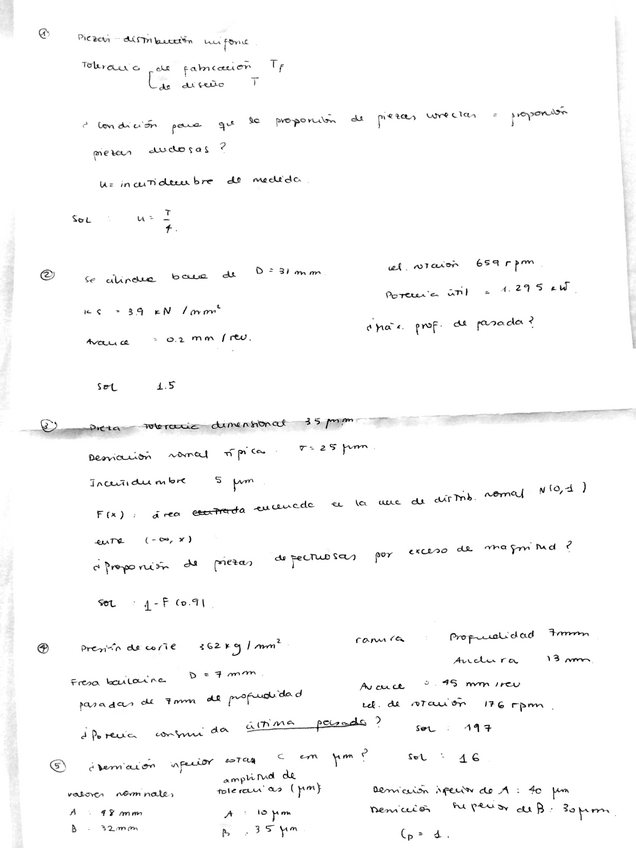 ① Piezas distribución uniforme
Tolerancia de fabricación Tf
de diseño T
¿ Condición para que la proporción de piezas correctas = proporción
piezas dudosas ?
u = incertidumbre de medida
SOL : u = T/4.
② Se cilindra barra de D = 31 mm
vel. rotación 659 rpm
Ks = 3.9 kN / mm²
Potencia útil = 1.295 kW
Avance = 0.2 mm / rev.
¿ máx. prof. de pasada ?
SOL 1.5
③ Pieza tolerancia dimensional 35 µm
Desviación normal típica. σ = 25 µm
Incertidumbre 5 µm
F(x) : área encerrada en la de distrib. normal N(0,1)
entre (-∞, x)
¿ Proporción de piezas defectuosas por exceso de magnitud ?
SOL : 1 - F (0.9)
④ Presión de corte 362 kg / mm²
ranura : Profundidad 7mm
Anchura 13 mm
Fresa bailarina D = 7 mm
pasadas de 7mm de profundidad
Avance = 45 mm /rev
vel. de rotación 176 rpm.
¿ Potencia consumida última pasada ?
SOL : 197
⑤ ¿ Desviación inferior cota C en µm ? SOL : 16
valores nominales
amplitud de
tolerancias (µm)
Desviación superior de A : 40 µm
Desviación superior de B : 30 µm.
A : 98 mm A : 10 µm
B : 32mm B : 35 µm
Cp = 1.